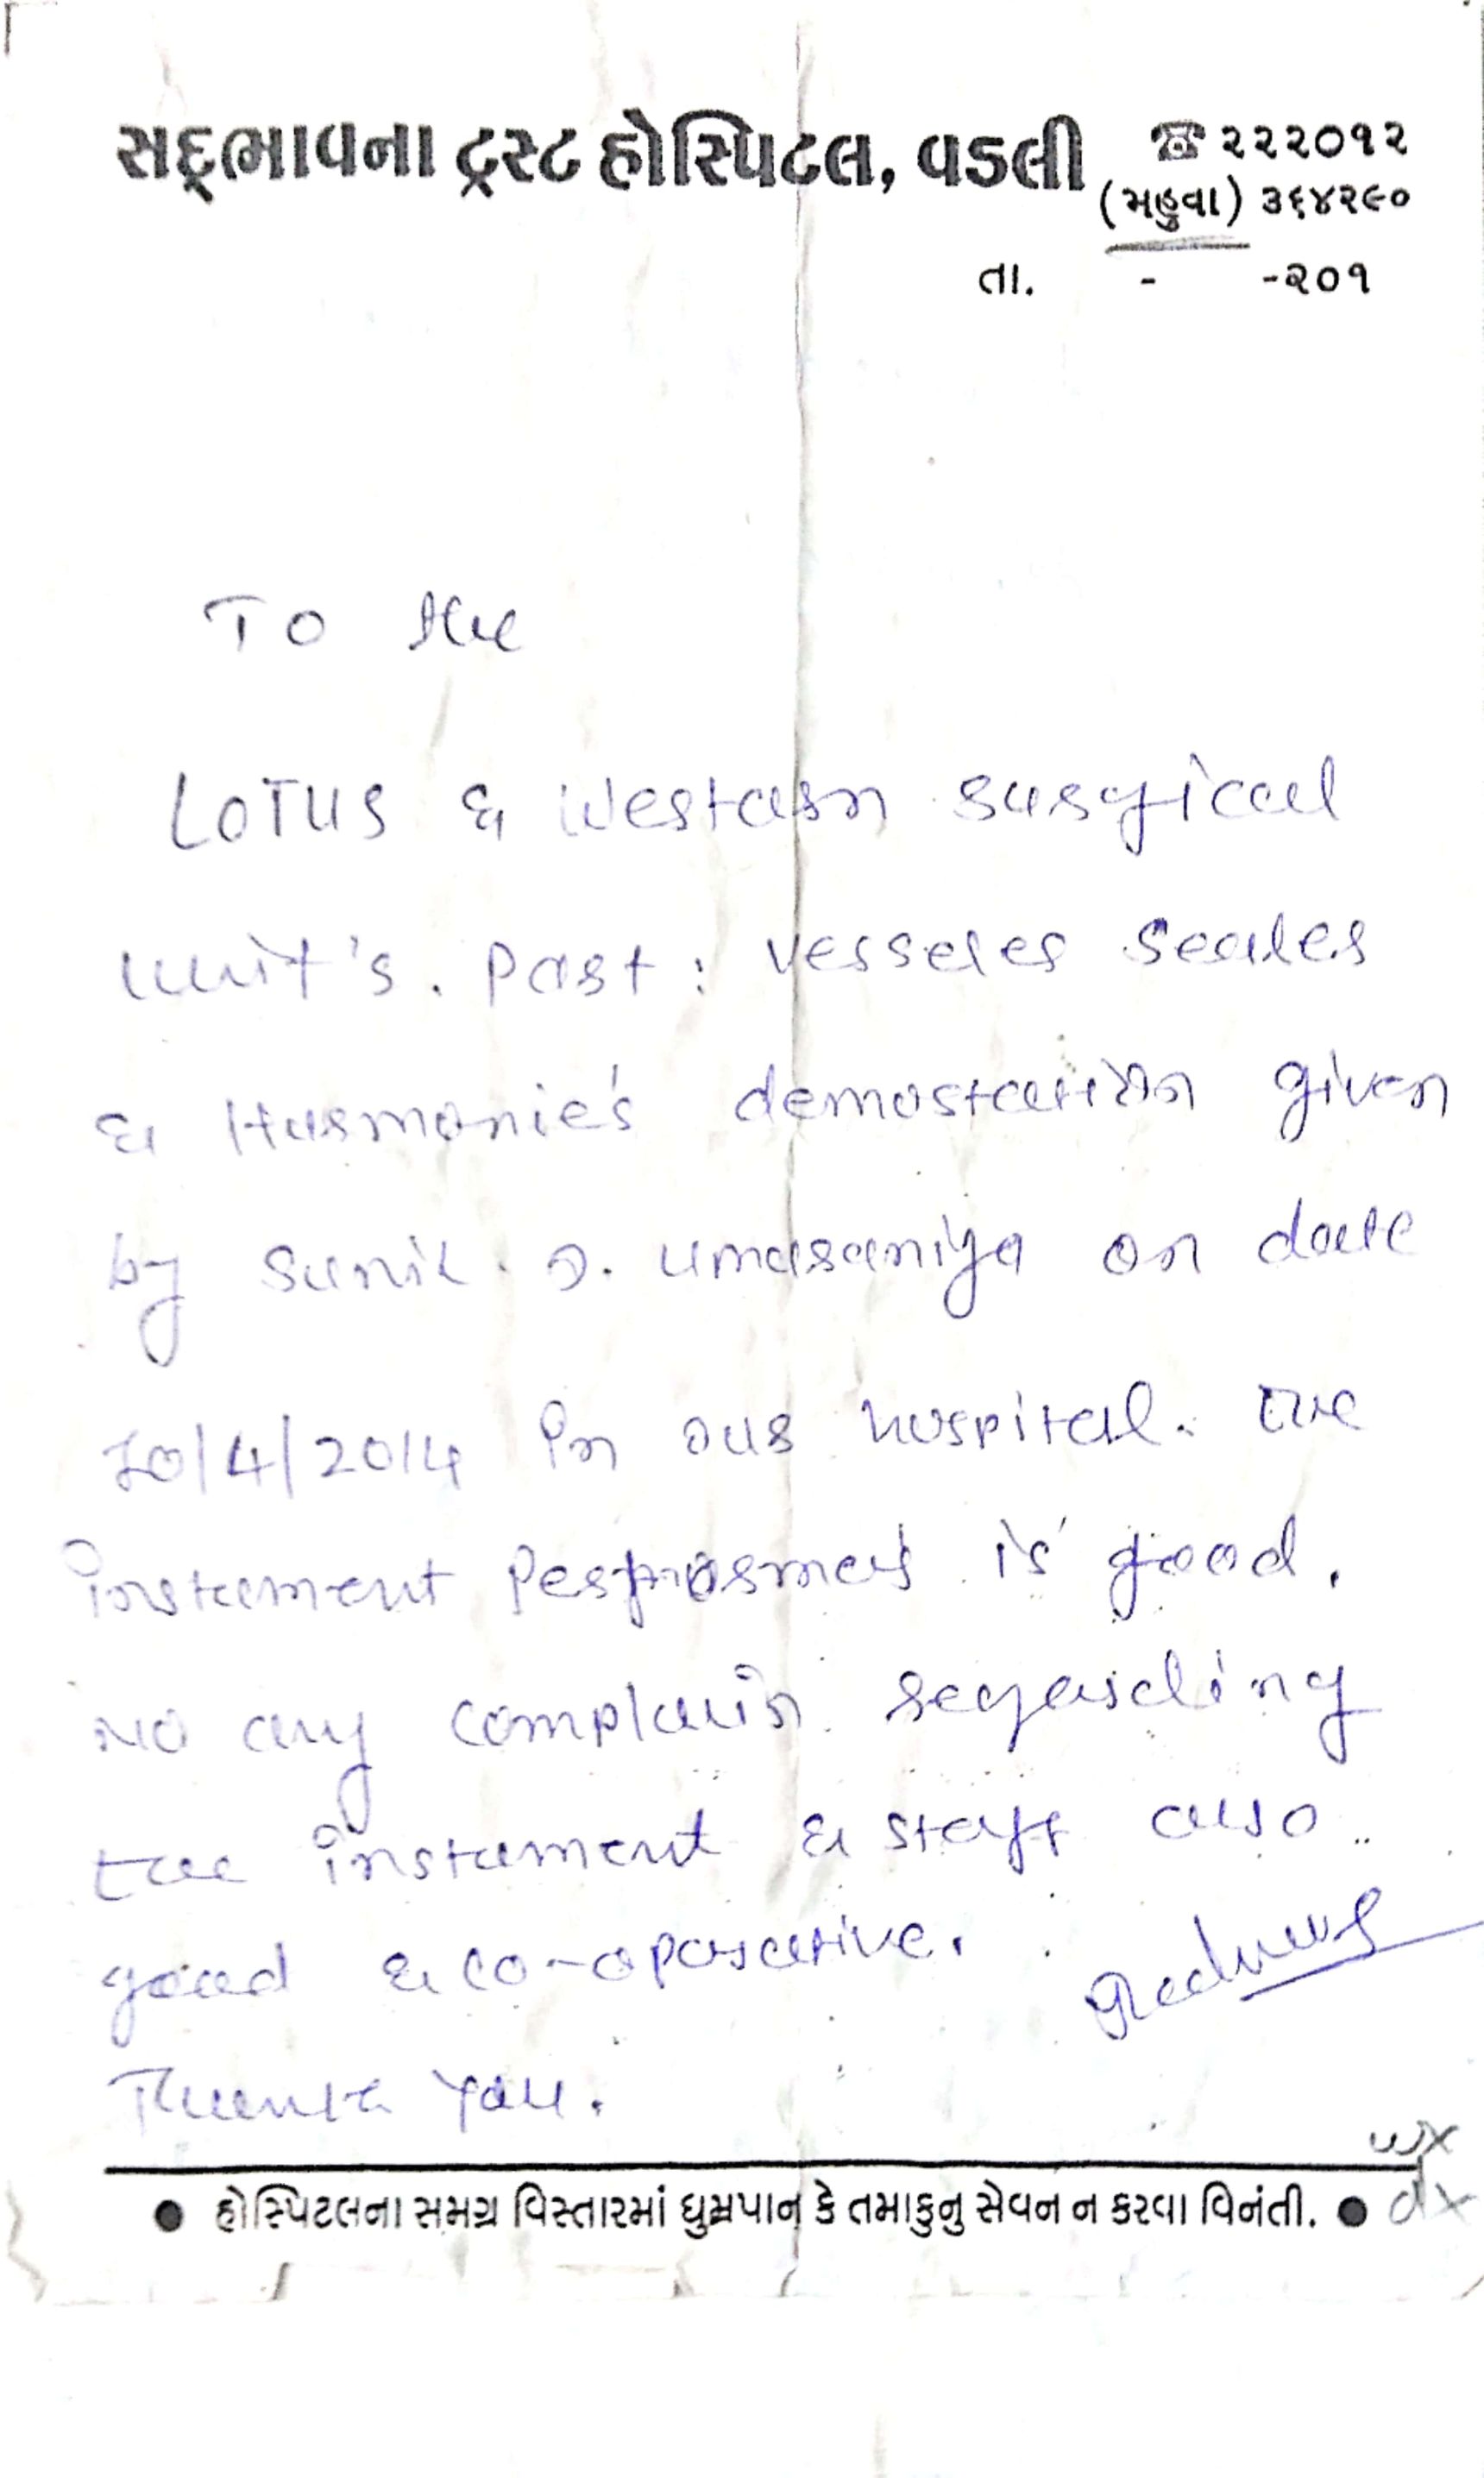 સદ્‌ભાવના ટ્રસ્ટ હોસ્પિટલ, વડલી ☎ ૨૨૨૦૧૨
(મહુવા) ૩૬૪૨૯૦
તા. - -૨૦૧
To the
LOTUS & Western surgical
unit's. Part: vesseles sealer
& Harmonie's demostration given
by Sunil. D. umaraniya on date
20/4/2014 in our hospital. The
instrument is good.
No any complain regarding
the instrument & staff also
good & co-oparative.
Thank you.
● હોસ્પિટલના સમગ્ર વિસ્તારમાં ધુમ્રપાન કે તમાકુનુ સેવન ન કરવા વિનંતી. ●